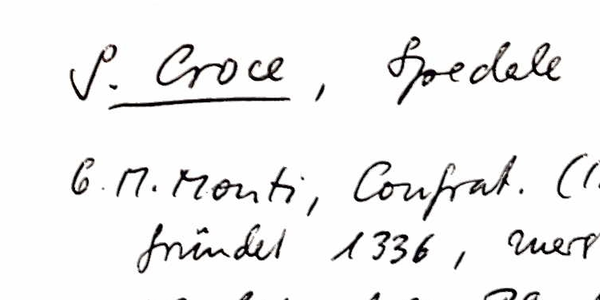 S. Croce, Spedale
G. M. Monti, Confrat. (1.
gründet 1336,